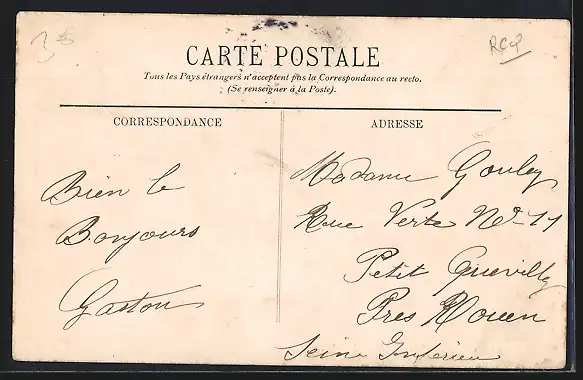 CARTE POSTALE
Tous les Pays étrangers n'acceptent pas la Correspondance au recto.
(Se renseigner à la Poste).
CORRESPONDANCE
Bien le
Bonjours
Gaston
ADRESSE
Madame Gouley
Rue Verte No 11
Petit Quevilly
Pres Rouen
Seine Inferieu